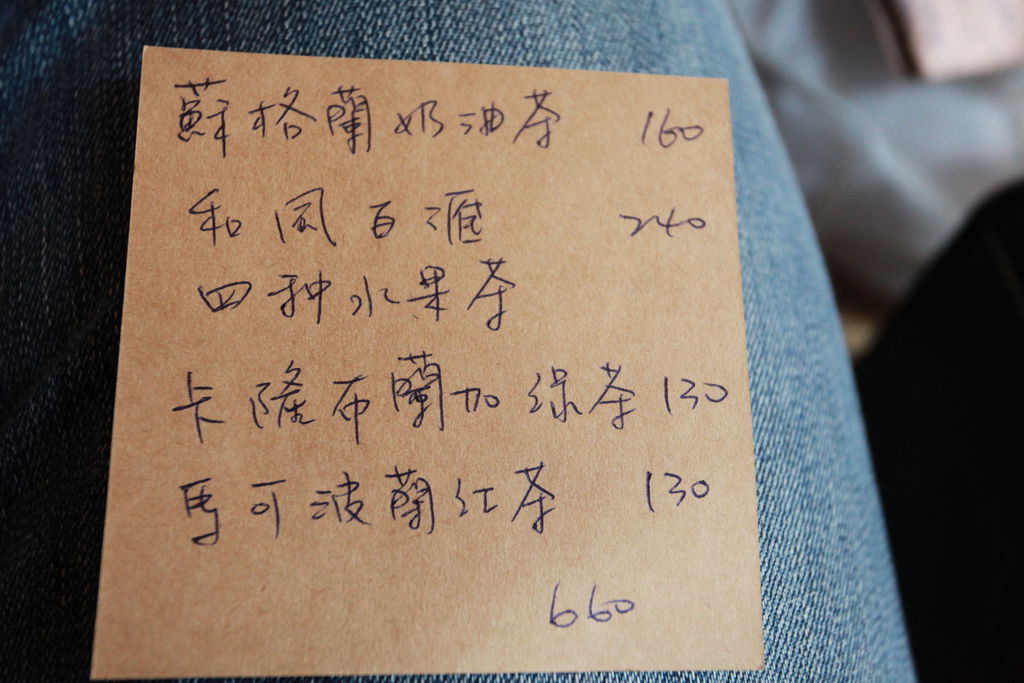 蘇格蘭奶油茶 160
和風百匯 240
四种水果茶
卡隆布蘭加綠茶 130
馬可波蘭红茶 130
660